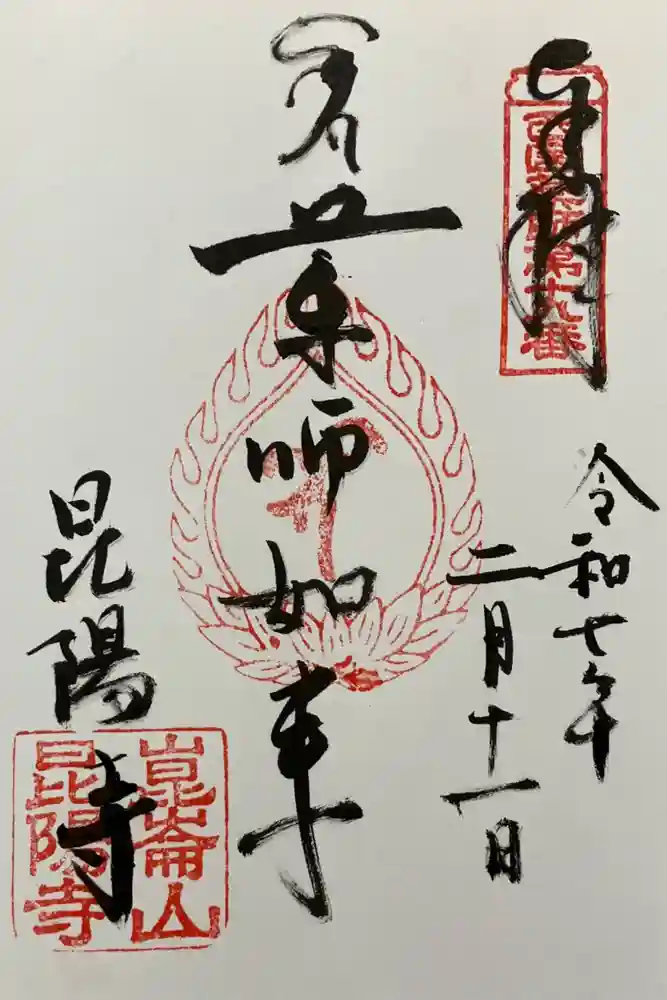 奉拝
西国薬師第十九番
令和七年
二月十一日
薬師如来
昆陽寺
崑崙山
昆陽寺